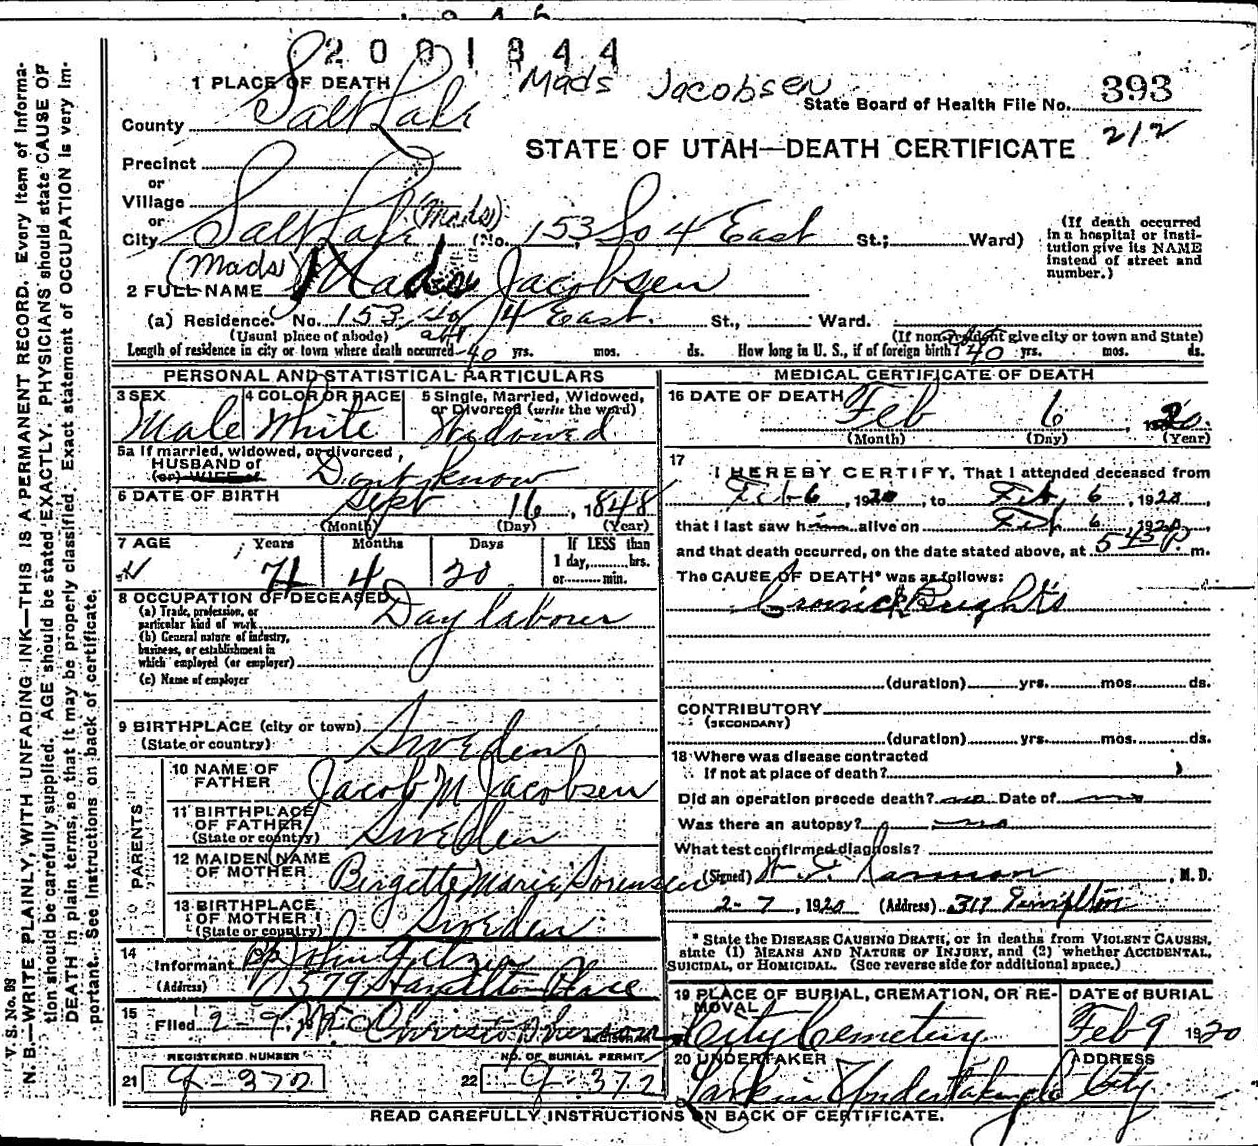 2001844
Mads Jacobsen
1 PLACE OF DEATH
State Board of Health File No. 393
County Salt Lake
212
STATE OF UTAH—DEATH CERTIFICATE
Precinct
or
Village
or
City Salt Lake (Mads) (No. 153 So 4 East St.; Ward)
(If death occurred in a hospital or institution give its NAME instead of street and number.)
(Mads)
2 FULL NAME Mads Jacobsen
(a) Residence. No. 153 So 4 East. St., Ward.
(Usual place of abode) (If non-resident give city or town and State)
Length of residence in city or town where death occurred abt 40 yrs. mos. ds. How long in U. S., if of foreign birth? 40 yrs. mos. ds.
PERSONAL AND STATISTICAL PARTICULARS
3 SEX Male
4 COLOR OR RACE White
5 Single, Married, Widowed, or Divorced (write the word) Widowed
5a If married, widowed, or divorced,
HUSBAND of
(or) WIFE of Dont know
6 DATE OF BIRTH Sept 16, 1848
(Month) (Day) (Year)
7 AGE Years 71 Months 4 Days 20 If LESS than 1 day, hrs. or min.
8 OCCUPATION OF DECEASED
(a) Trade, profession, or particular kind of work Day labour
(b) General nature of industry, business, or establishment in which employed (or employer)
(c) Name of employer
9 BIRTHPLACE (city or town)
(State or country) Sweden
PARENTS
10 NAME OF FATHER Jacob M Jacobsen
11 BIRTHPLACE OF FATHER (State or country) Sweden
12 MAIDEN NAME OF MOTHER Birgette Marie Sorensen
13 BIRTHPLACE OF MOTHER (State or country) Sweden
14 Informant John
(Address) 1379 Hamilton Place
15 Filed 2-9, 19
REGISTRAR
REGISTERED NUMBER
21 G-372
NO. OF BURIAL PERMIT
22 G-372
MEDICAL CERTIFICATE OF DEATH
16 DATE OF DEATH Feb 6, 1920.
(Month) (Day) (Year)
17 I HEREBY CERTIFY, That I attended deceased from
Feb 6, 1920, to Feb, 6, 1920,
that I last saw him alive on Feb 6, 1920,
and that death occurred, on the date stated above, at 5 45 P. m.
The CAUSE OF DEATH* was as follows:
Cronick Brights
(duration) yrs. mos. ds.
CONTRIBUTORY
(SECONDARY)
(duration) yrs. mos. ds.
18 Where was disease contracted
If not at place of death?
Did an operation precede death? no Date of
Was there an autopsy? no
What test confirmed diagnosis?
(Signed) , M. D.
2-7, 1920 (Address) 317 Templeton
*State the DISEASE CAUSING DEATH, or in deaths from VIOLENT CAUSES, state (1) MEANS AND NATURE OF INJURY, and (2) whether ACCIDENTAL, SUICIDAL, or HOMICIDAL. (See reverse side for additional space.)
19 PLACE OF BURIAL, CREMATION, OR REMOVAL City Cemetery
DATE of BURIAL Feb 9 1920
20 UNDERTAKER Larkin Undertaking Co
ADDRESS City
READ CAREFULLY INSTRUCTIONS ON BACK OF CERTIFICATE.
V. S. No. 93
N. B.—WRITE PLAINLY, WITH UNFADING INK—THIS IS A PERMANENT RECORD. Every item of information should be carefully supplied. AGE should be stated EXACTLY. PHYSICIANS should state CAUSE OF DEATH in plain terms, so that it may be properly classified. Exact statement of OCCUPATION is very important. See instructions on back of certificate.